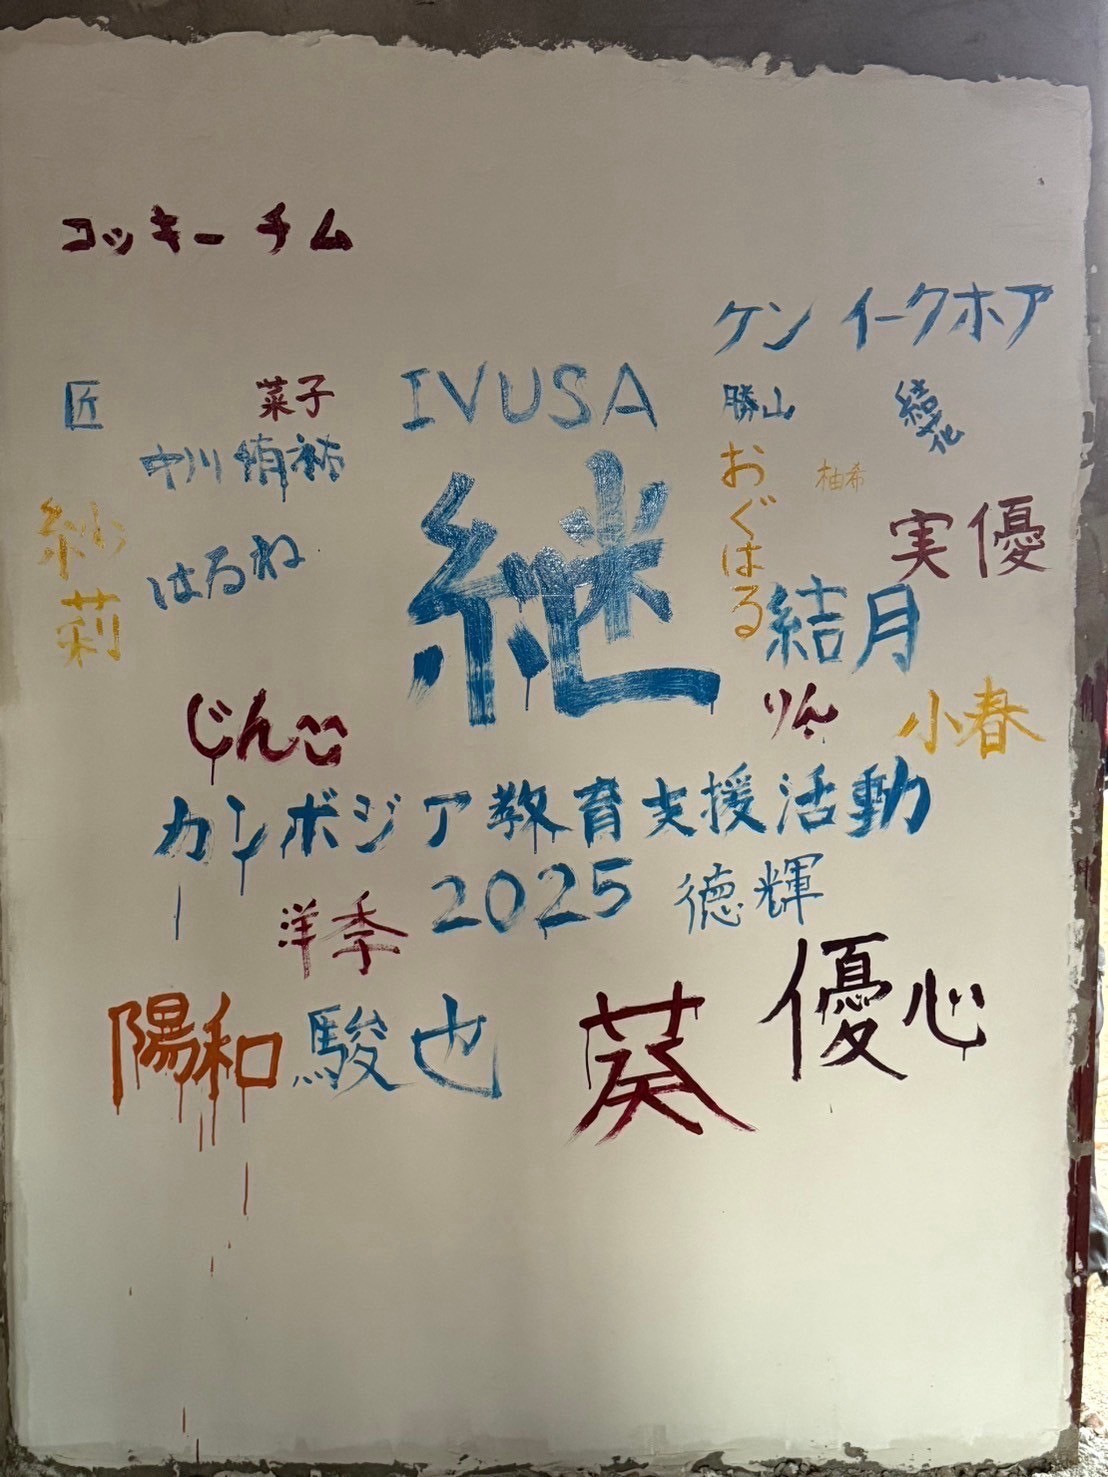 コッキー チム
ケン イークホア
IVUSA
匠
菜子
勝山
結花
中川 慎祐
おぐはる
柚希
継
紗莉
はるね
実優
結月
じんこ
りん
小春
カンボジア教育支援活動
2025
徳輝
洋季
陽和
駿也
葵
優心